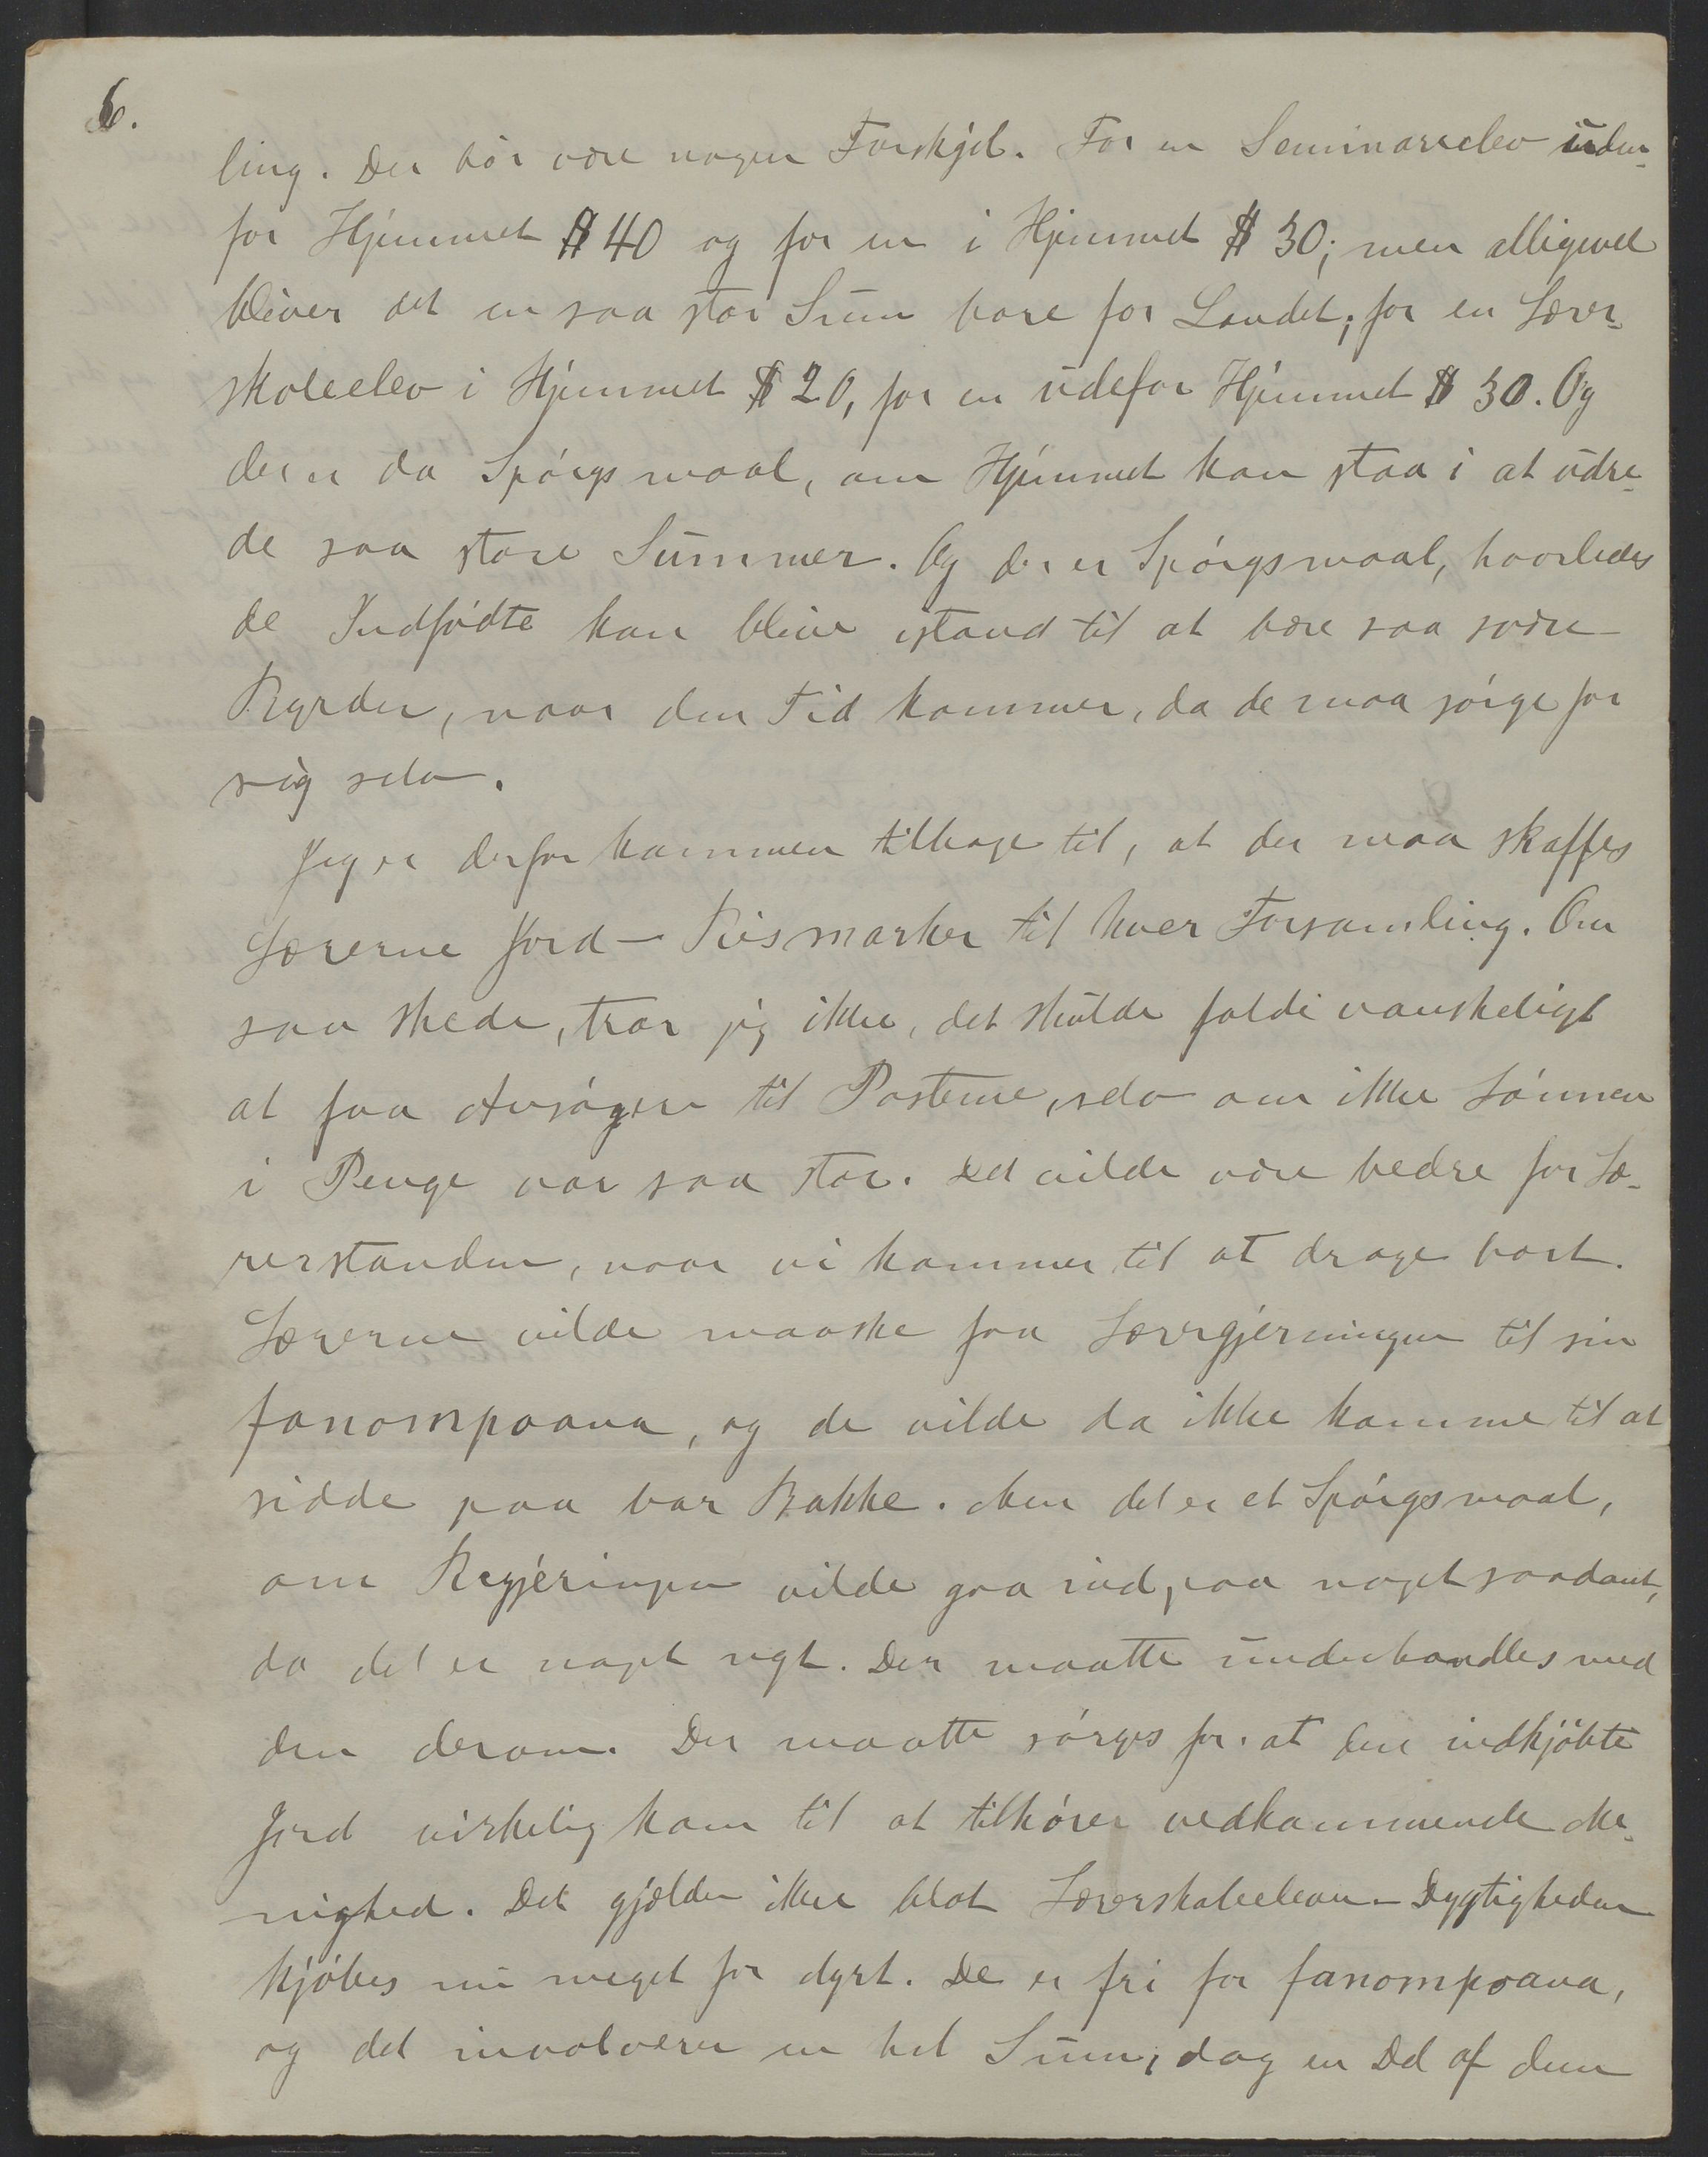 6.
ling. Der bör være nogen Forskjel. For en Seminarelev uden-
for Hjemmet $ 40 og for en i Hjemmet $ 30; men alligevel
bliver det en saa stor Sum bare for Landet; for en Lærer-
skoleelev i Hjemmet $ 20, for en udefor Hjemmet $ 30. Og
der er da Spörgsmaal, om Hjemmet kan staa i at udre-
de saa store Summer. Og der er Spörgsmaal, hvorledes
de Indfödte kan blive istand til at bære saa svære
Byrder, naar den Tid kommer, da de maa sörge for
sig selv.
Jeg er derfor kommen tilbage til, at der maa skaffes
Lærerne Jord - Rismarker til hver Forsamling. Om
saa skede, tror jeg ikke, det skulde falde vanskeligt
at faa Ansögere til Posterne, selv om ikke Lönnen
i Penge var saa stor. Det vilde være bedre for Læ-
rerstanden, naar vi kommer til at drage bort.
Lærerne vilde maaske faa Lærergjerningen til sin
fanompoana, og de vilde da ikke komme til at
sidde paa bar Bakke. Men det er et Spörgsmaal,
om Regjeringen vilde gaa ind paa noget saadant,
da det er noget nyt. Der maatte underhandles med
den derom. Der maatte sörges for at den indkjöbte
Jord virkelig kom til at tilhöre vedkommende Me-
nighed. Det gjælder ikke blot Lærerskoleeleven - Dygtigheden
kjöbes nu meget for dyrt. De er fri for fanompoana,
og det involverer en hel Sum, dog en Del af dem